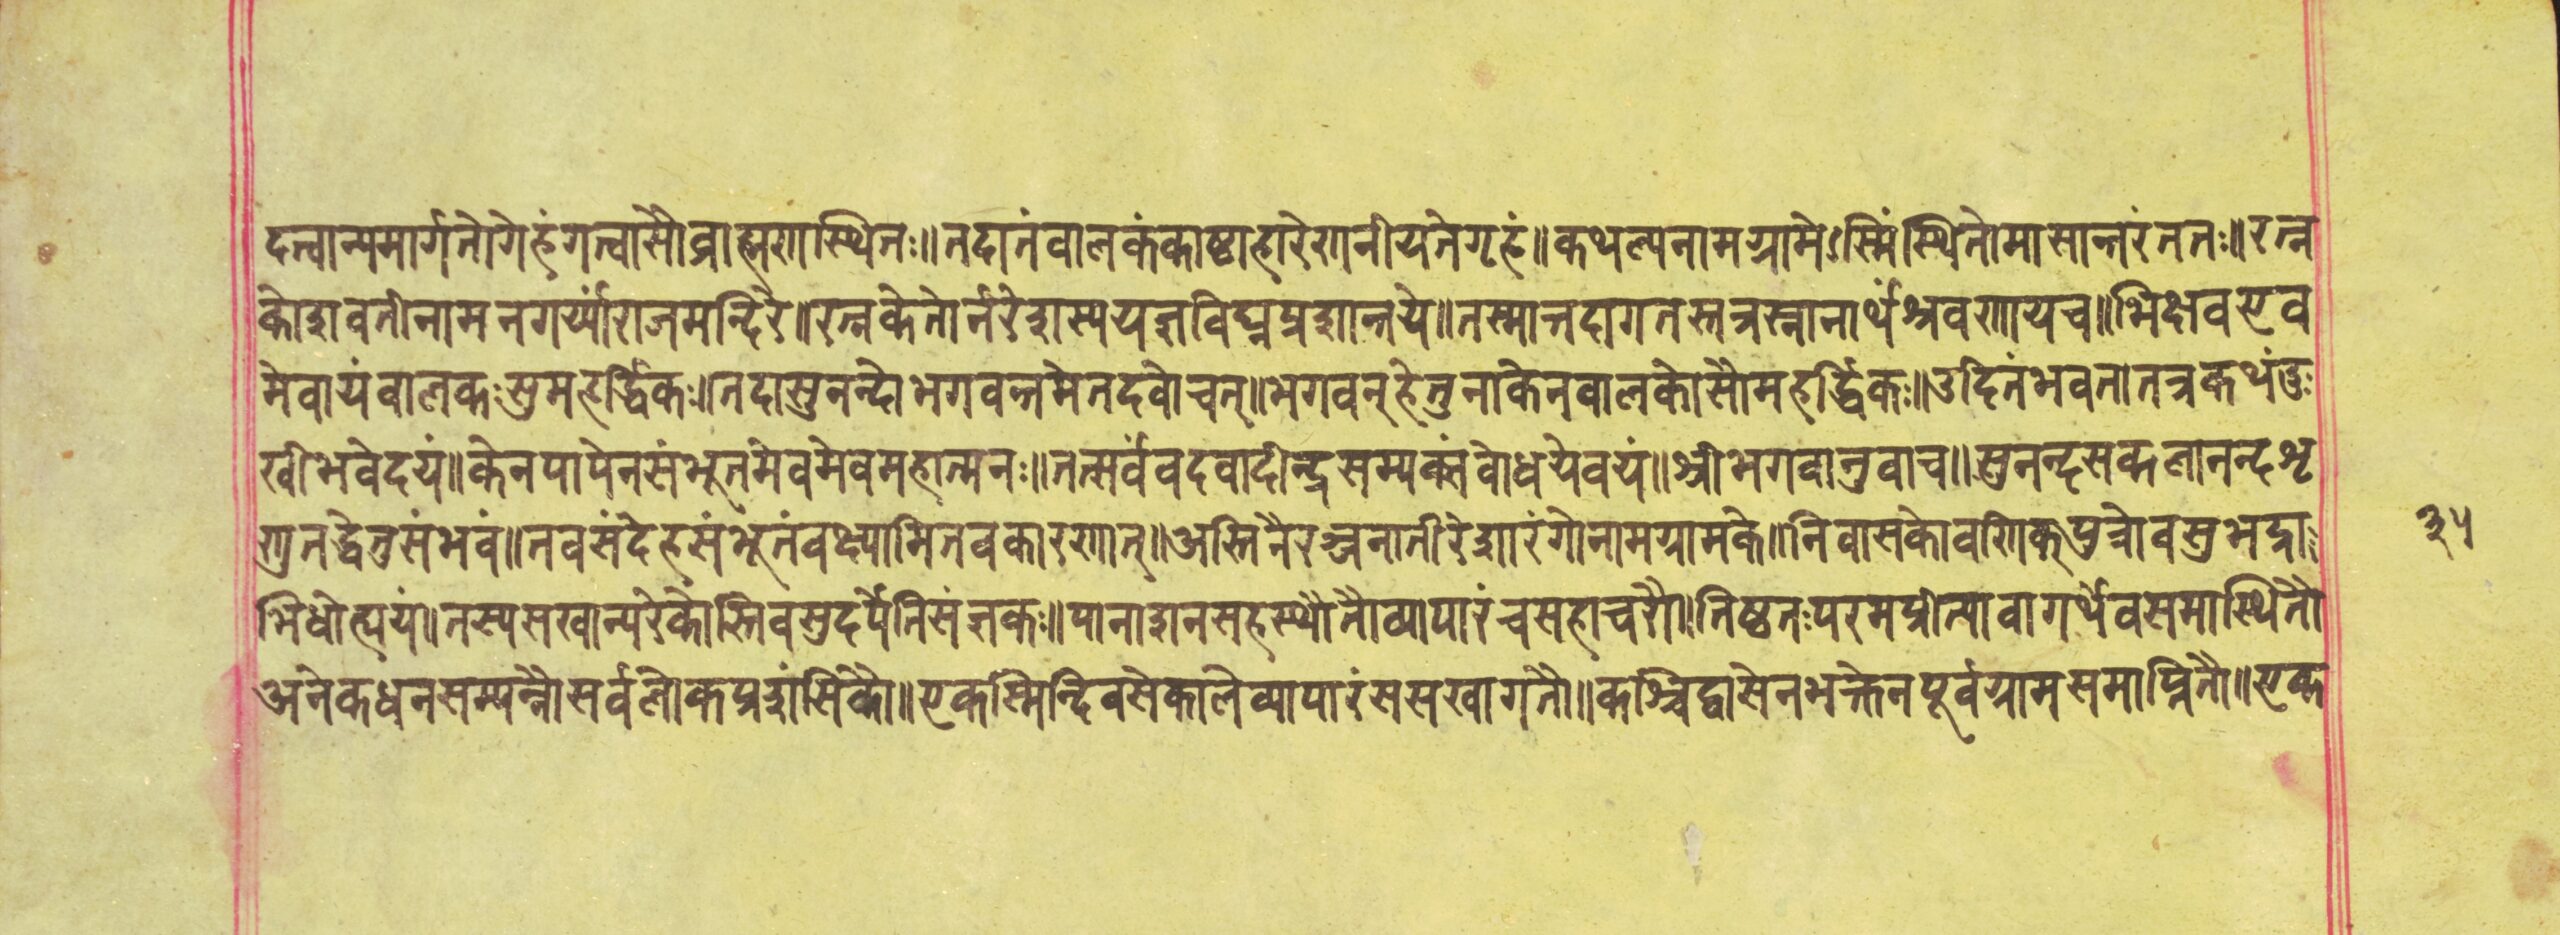 दत्त्वान्यमार्गतो गेहं गत्वासौ ब्राह्मणास्थितः॥ तदा तं बालकं काष्ठाहारेणानीयते गृहं॥ कथल्पनामग्रामेऽस्मिं स्थितो मासान्तरं ततः॥ रत्न
कोशवतीनामनगर्य्यां राजमन्दिरे॥ रत्नकेतोर्नरेशस्य यज्ञविघ्नप्रशान्तये॥ तस्मात्तदागतस्तत्रस्नानार्थं श्रवणाय च॥ भिक्षव एव
मेवायं बालकः सुमहर्द्धिकः॥ तदा सुनन्दो भगवन्तमेतदवोचत्॥ भगवन् हेतुना केन बालकोसौ महर्द्धिकः॥ उदितं भवता तत्र कथं दुः
खी भवेदयं॥ केन पापेन संभूतमेवमेव महात्मनः॥ तत्सर्वं वद वादीन्द्र सम्यक्त्तं बोधयेवयं॥ श्रीभगवानुवाच॥ सुनन्द सकलानन्द शृ
णु तद्धेतुसंभवं॥ तव संदेहसंभूतं वक्ष्यामि तव कारणात्॥ अस्ति नैरञ्जनातीरे शारंगो नाम ग्रामके॥ निवासको वणिक्पुत्रो वसुभद्रा
भिधोत्ययं॥ तस्य सखान्यरेकोस्ति वसुदर्पेति संज्ञकः॥ पानाशनसहस्थौ तौ व्यापारं च सहाचरौ॥ तिष्ठतः परमप्रीत्या वागर्थेव समास्थितौ
अनेकधनसम्पन्नौ सर्वलोकप्रशंसिकौ॥ एकस्मिन्दिवसे काले व्यापारं ससखागतौ॥ कश्चिद्वासेन भक्तेन पूर्वग्रामसमाप्नितौ॥ एक
३५